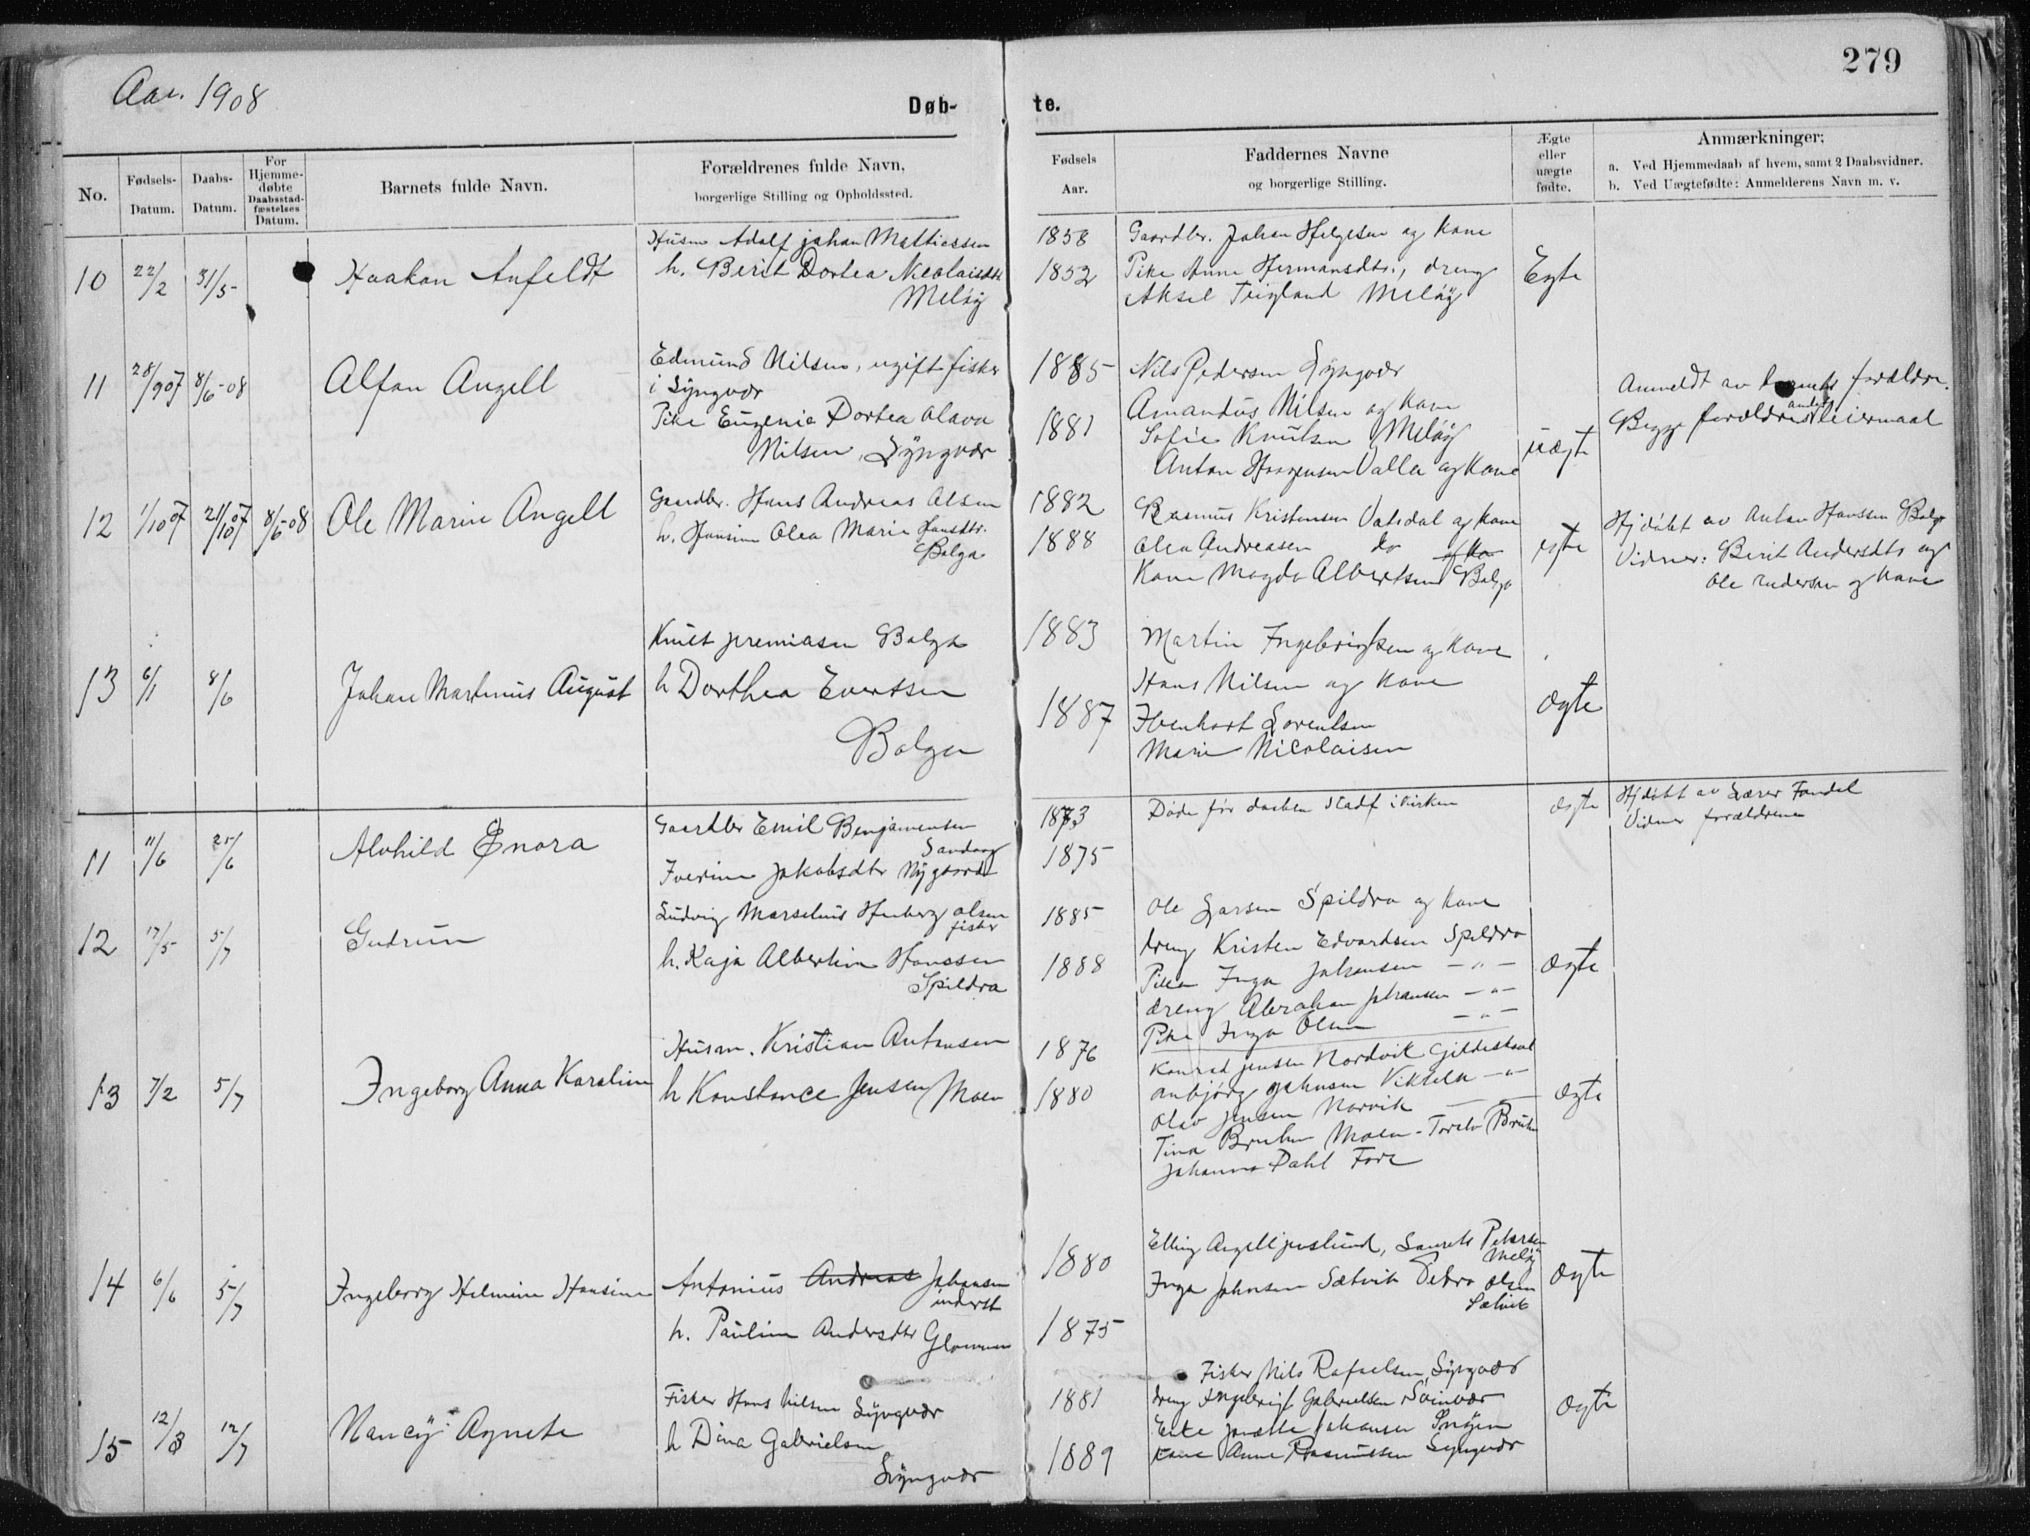 Aar. 1908
279
Døb-
te.
No.
Fødsels-
Datum.
Daabs-
Datum.
For
Hjemme-
døbte
Daabsstad-
fæstelses
Datum.
Barnets fulde Navn.
Forældrenes fulde Navn,
borgerlige Stilling og Opholdssted.
Fødsels
Aar.
Faddernes Navne
og borgerlige Stilling.
Ægte
eller
uægte
fødte.
Anmærkninger;
a. Ved Hjemmedaab af hvem, samt 2 Daabsvidner.
b. Ved Uægtefødte: Anmelderens Navn m. v.
10
22/2
31/5
Haakon Anfeldt
Husm Adolf Johan Mathiessen
h. Berit Dortea Nicolaisdtr
Meløy
1858
1852
Gaardbr. Johan Helgesen og Kone
Pike Anne Hermansdtr., dreng
Aksel Teigland Meløy
Egte
11
28/9 07
8/6-08
Alfon Angell
Edmund Nilsen, ugift fisker
i Syngvær
Pike Eugenie Dortea Olava
Nilsen, Syngvær
1885
1881
Nils Pedersen Syngvær
Amandus Nilsen og Kone
Sofie Knutsen Meløy
Anton Haagensen Valla og Kone
uægte
Anmeldt av barnets forældre.
Begge forældres andet leiermaal
12
1/10 07
21/10 07
8/6-08
Ole Marin Angell
Gaardbr. Hans Andreas Olsen
h. Hansine Olea Marie Hansdtr.
Bolga
1882
1888
Rasmus Kristensen Vatsdal og Kone
Olea Andreasen do
Kone Magda Albertsen Bolga
egte
Hjdøbt av Anton Hanssen Bolga
Vidner: Berit Andersdtr og
Ole Andersen og Kone
13
6/1
8/6
Johan Martinus August
Knut Jeremiasen Bolga
h Dorthea Evertsen
Bolga
1883
1887
Martin Ingebrigtsen og Kone
Hans Nilsen og Kone
Ibenhart Lorentsen
Marie Nicolaisen
ægte
11
11/6
25/6
Alvhild Enora
Gaardbr Emil Benjamensen
Sandvaag
Iverine Jakobsdtr Nygaard
1873
1875
Døde før daaben stadf i kirken
ægte
Hjdøbt av Lærer Fondal
Vidner forældrene
12
17/5
5/7
Gudrun
Ludvig Marselius Henberg Olsen
fisker
h. Kaja Albertine Hanssen
Spildra
1885
1888
Ole Larsen Spildra og Kone
dreng Kristen Edvardsen Spildra
Pike Inga Johansen — " —
dreng Abraham Johansen — " —
Pike Inga Olsen — " —
ægte
13
7/2
5/7
Ingeborg Anna Karoline
Husm. Kristian Antonsen
h Konstance Jensen Moen
1876
1880
Konrad Jensen Nordvik Gildeskaal
Anbjørg Johnsen — " —
Olav Jensen Norvik — —
Tina Bruhn Moen - Torelv Bruhn
Johanna Dahl Fore
ægte
14
6/6
5/7
Ingeborg Helmine Hansine
Antonius Andreas Johansen
inderst
h. Pauline Andersdtr Glommen
1880
1875
Elling Angell Jenslund, Laurits Petersen
Meløy
Inga Johnsen Sætvik Petra Olsen
Sætvik
ægte
15
12/3
12/7
Nancy Agnete
Fisker Hans Nilsen Syngvær
h Dina Gabrielsen
Syngvær
1881
1889
Fisker Nils Rafaelsen, Syngvær
dreng Ingebrigt Gabrielsen Svinvær
Enke Janette Johansen
Kone Anne Rasmussen Syngvær
ægte